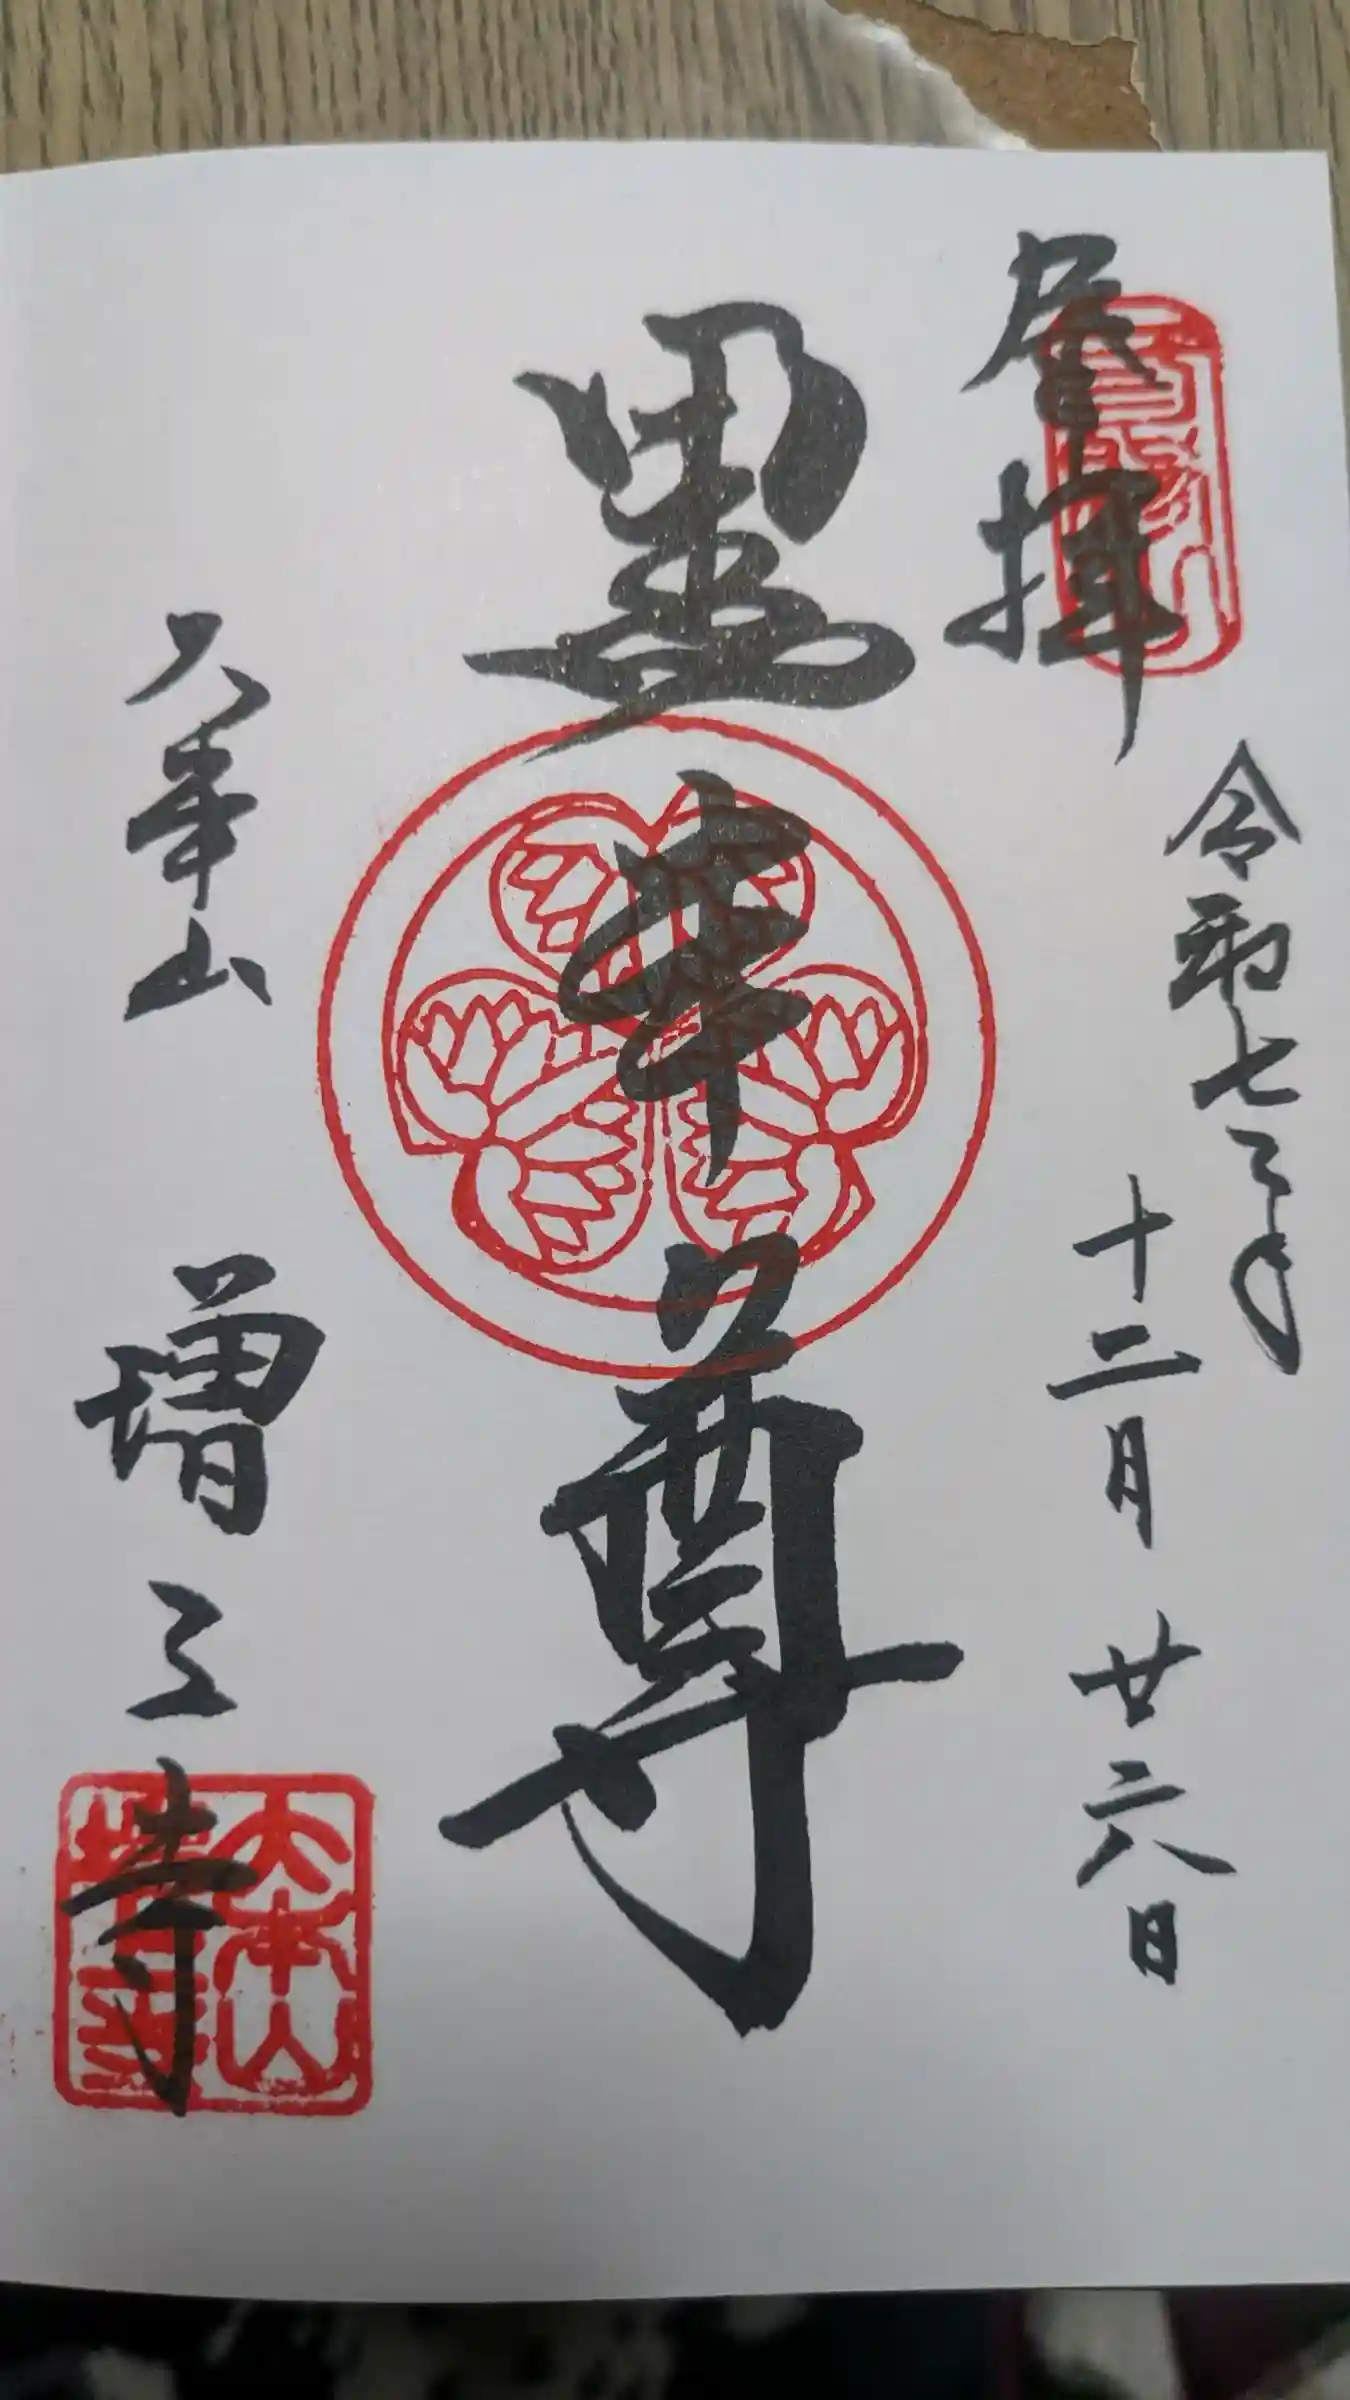 拝
令和七年
十二月廿六日
黒本尊
大本山
増上寺
大本山
増上寺